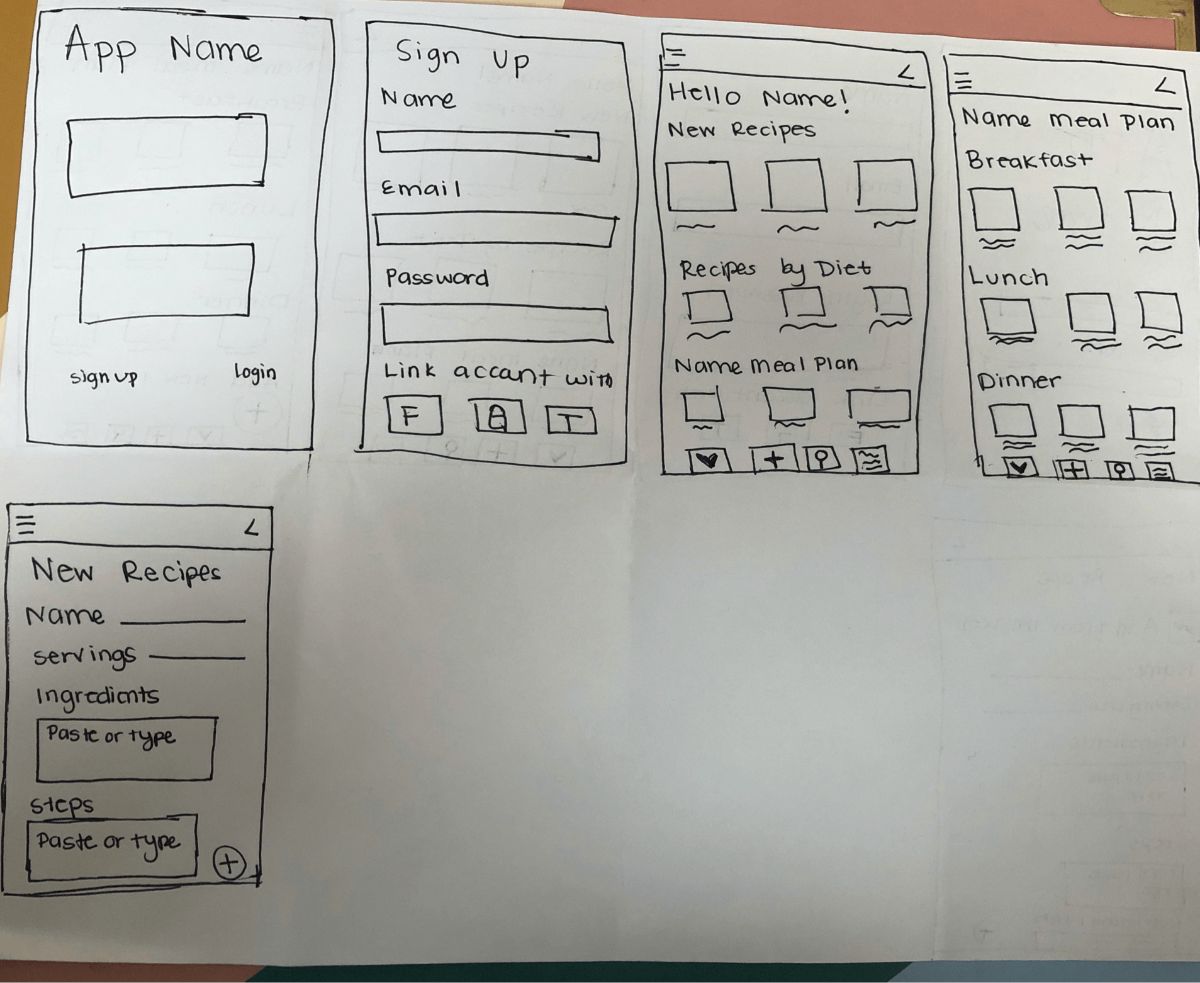 App Name
sign up
login
Sign Up
Name
Email
Password
Link accant with
F
T
Hello Name!
New Recipes
Recipes by Diet
Name meal Plan
Name meal Plan
Breakfast
Lunch
Dinner
New Recipes
Name
servings
Ingredients
Paste or type
Steps
Paste or type